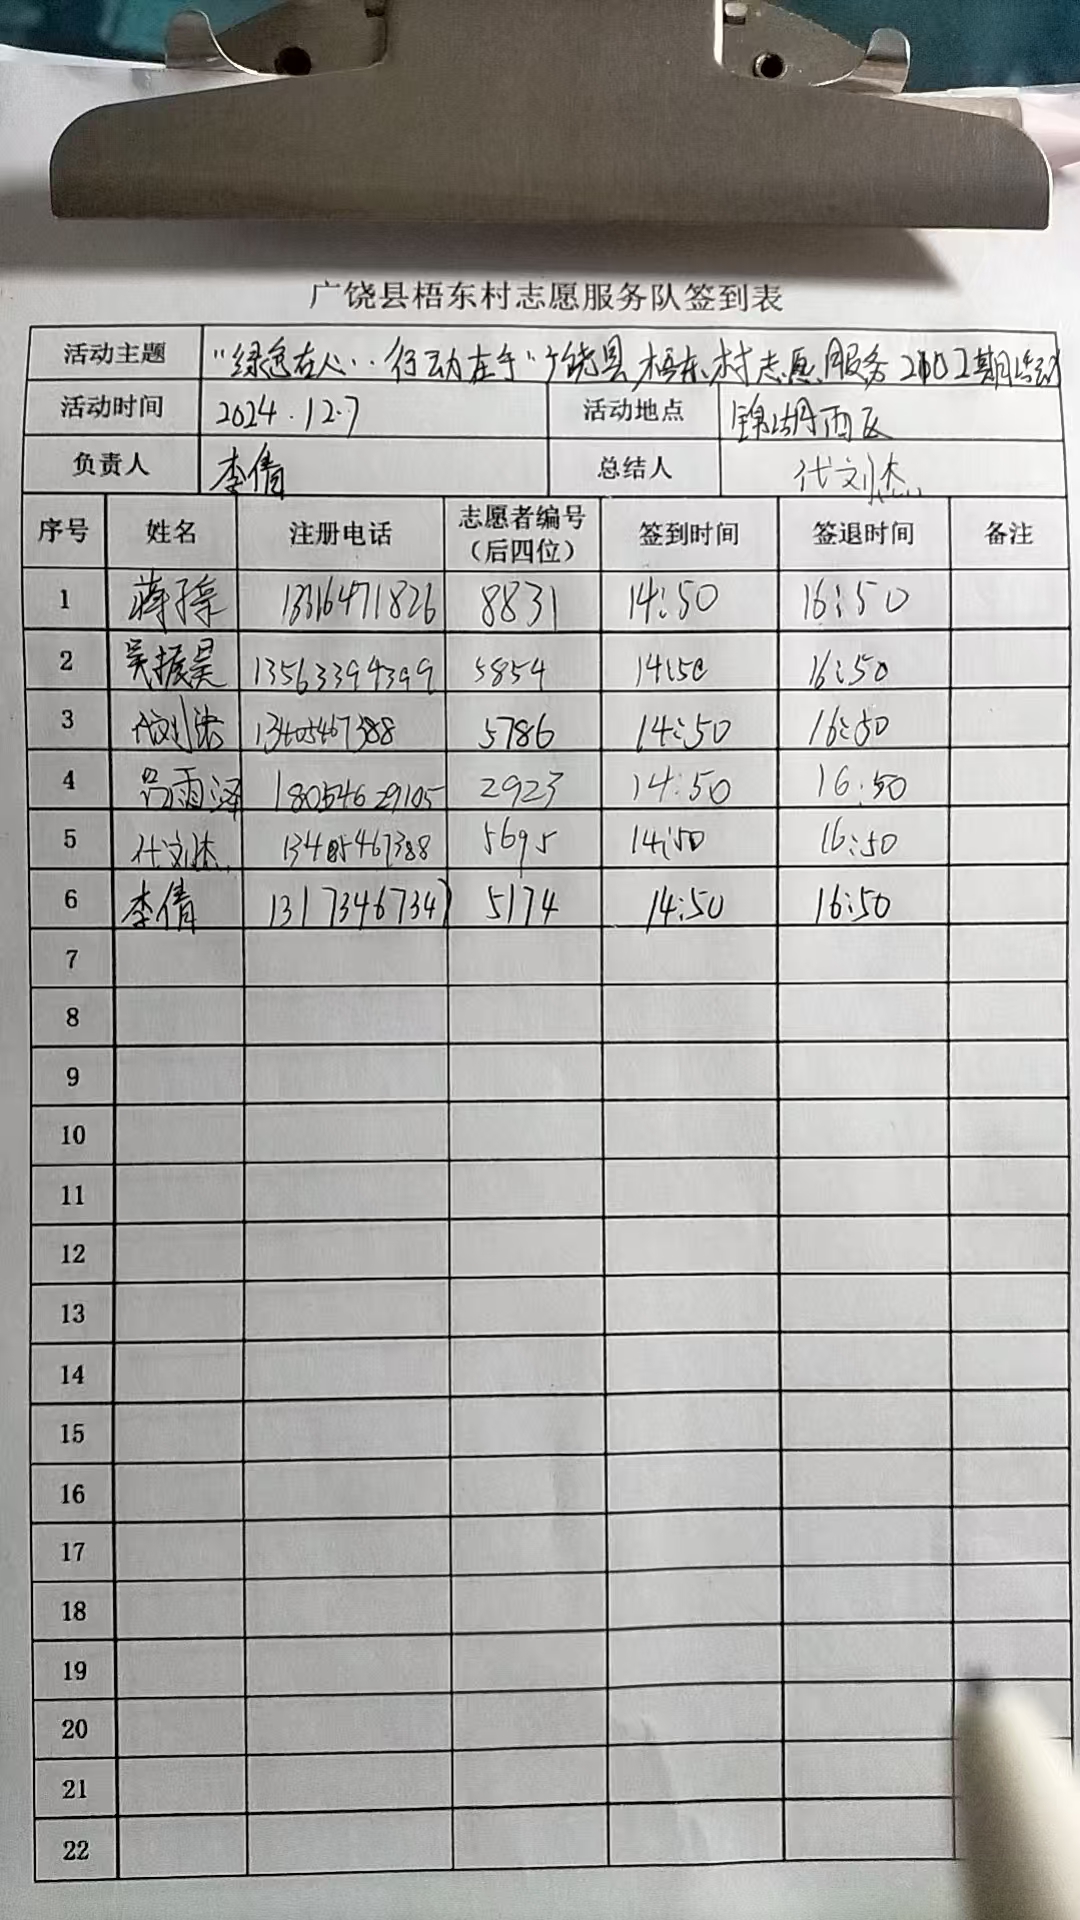 广饶县梧东村志愿服务队签到表
活动主题 "绿色在心..行动在手"广饶县梧东村志愿服务2102期活动
活动时间 2024.12.7 活动地点 锦湖西区
负责人 李倩 总结人 代刘杰
序号 姓名 注册电话 志愿者编号（后四位） 签到时间 签退时间 备注
1 13316471826 8831 14:50 16:50
2 吴振昊 13563394399 5854 14:50 16:50
3 13405467388 5786 14:50 16:50
4 吕雨泽 18054629105 2923 14:50 16.50
5 代刘杰 13405467388 5695 14:50 16:50
6 李倩 13173467341 5174 14:50 16:50
7
8
9
10
11
12
13
14
15
16
17
18
19
20
21
22